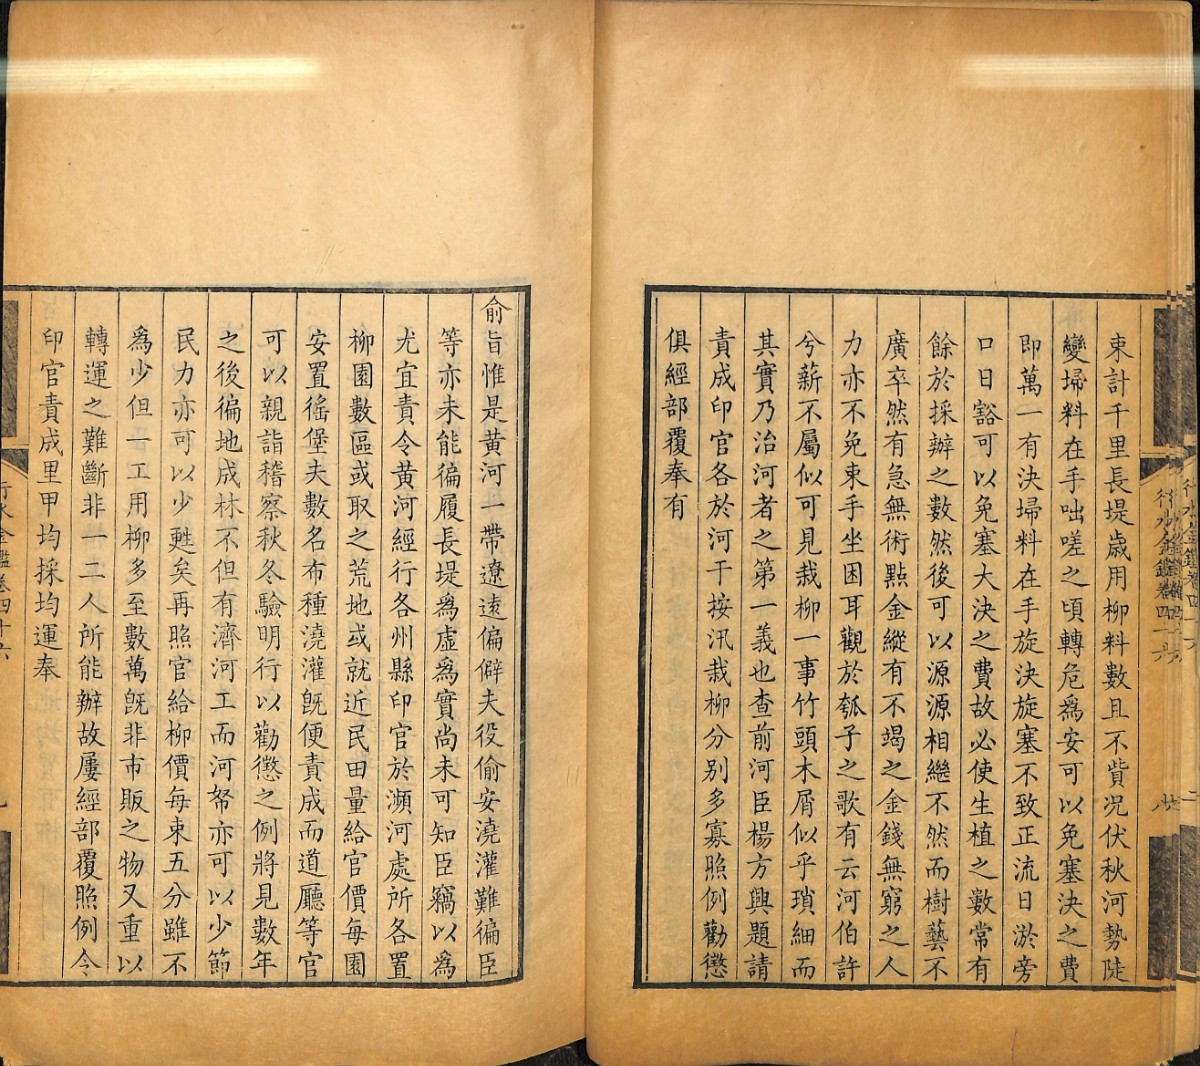 束計千里長堤歲用柳料數且不貲況伏秋河勢陡
變埽料在手咄嗟之頃轉危爲安可以免塞決之費
即萬一有決埽料在手旋決旋塞不致正流日淤旁
口日豁可以免塞大決之費故必使生植之數常有
餘於採辦之數然後可以源源相繼不然而樹藝不
廣卒然有急無術點金縱有不竭之金錢無窮之人
力亦不免束手坐困耳觀於瓠子之歌有云河伯許
兮薪不屬似可見栽柳一事竹頭木屑似乎瑣細而
其實乃治河者之第一義也查前河臣楊方興題請
責成印官各於河干按汛栽柳分別多寡照例勸懲
俱經部覆奉有
俞旨惟是黃河一帶遼遠偏僻夫役偷安澆灌難徧臣
等亦未能徧履長堤爲虛爲實尚未可知臣竊以爲
尤宜責令黃河經行各州縣印官於瀕河處所各置
柳園數區或取之荒地或就近民田量給官價每園
安置徭堡夫數名布種澆灌旣便責成而道廳等官
可以親詣稽察秋冬驗明行以勸懲之例將見數年
之後徧地成林不但有濟河工而河帑亦可以少節
民力亦可以少甦矣再照官給柳價每束五分雖不
爲少但一工用柳多至數萬旣非市販之物又重以
轉運之難斷非一二人所能辦故屢經部覆照例令
印官責成里甲均採均運奉
行水金鑑卷四十六